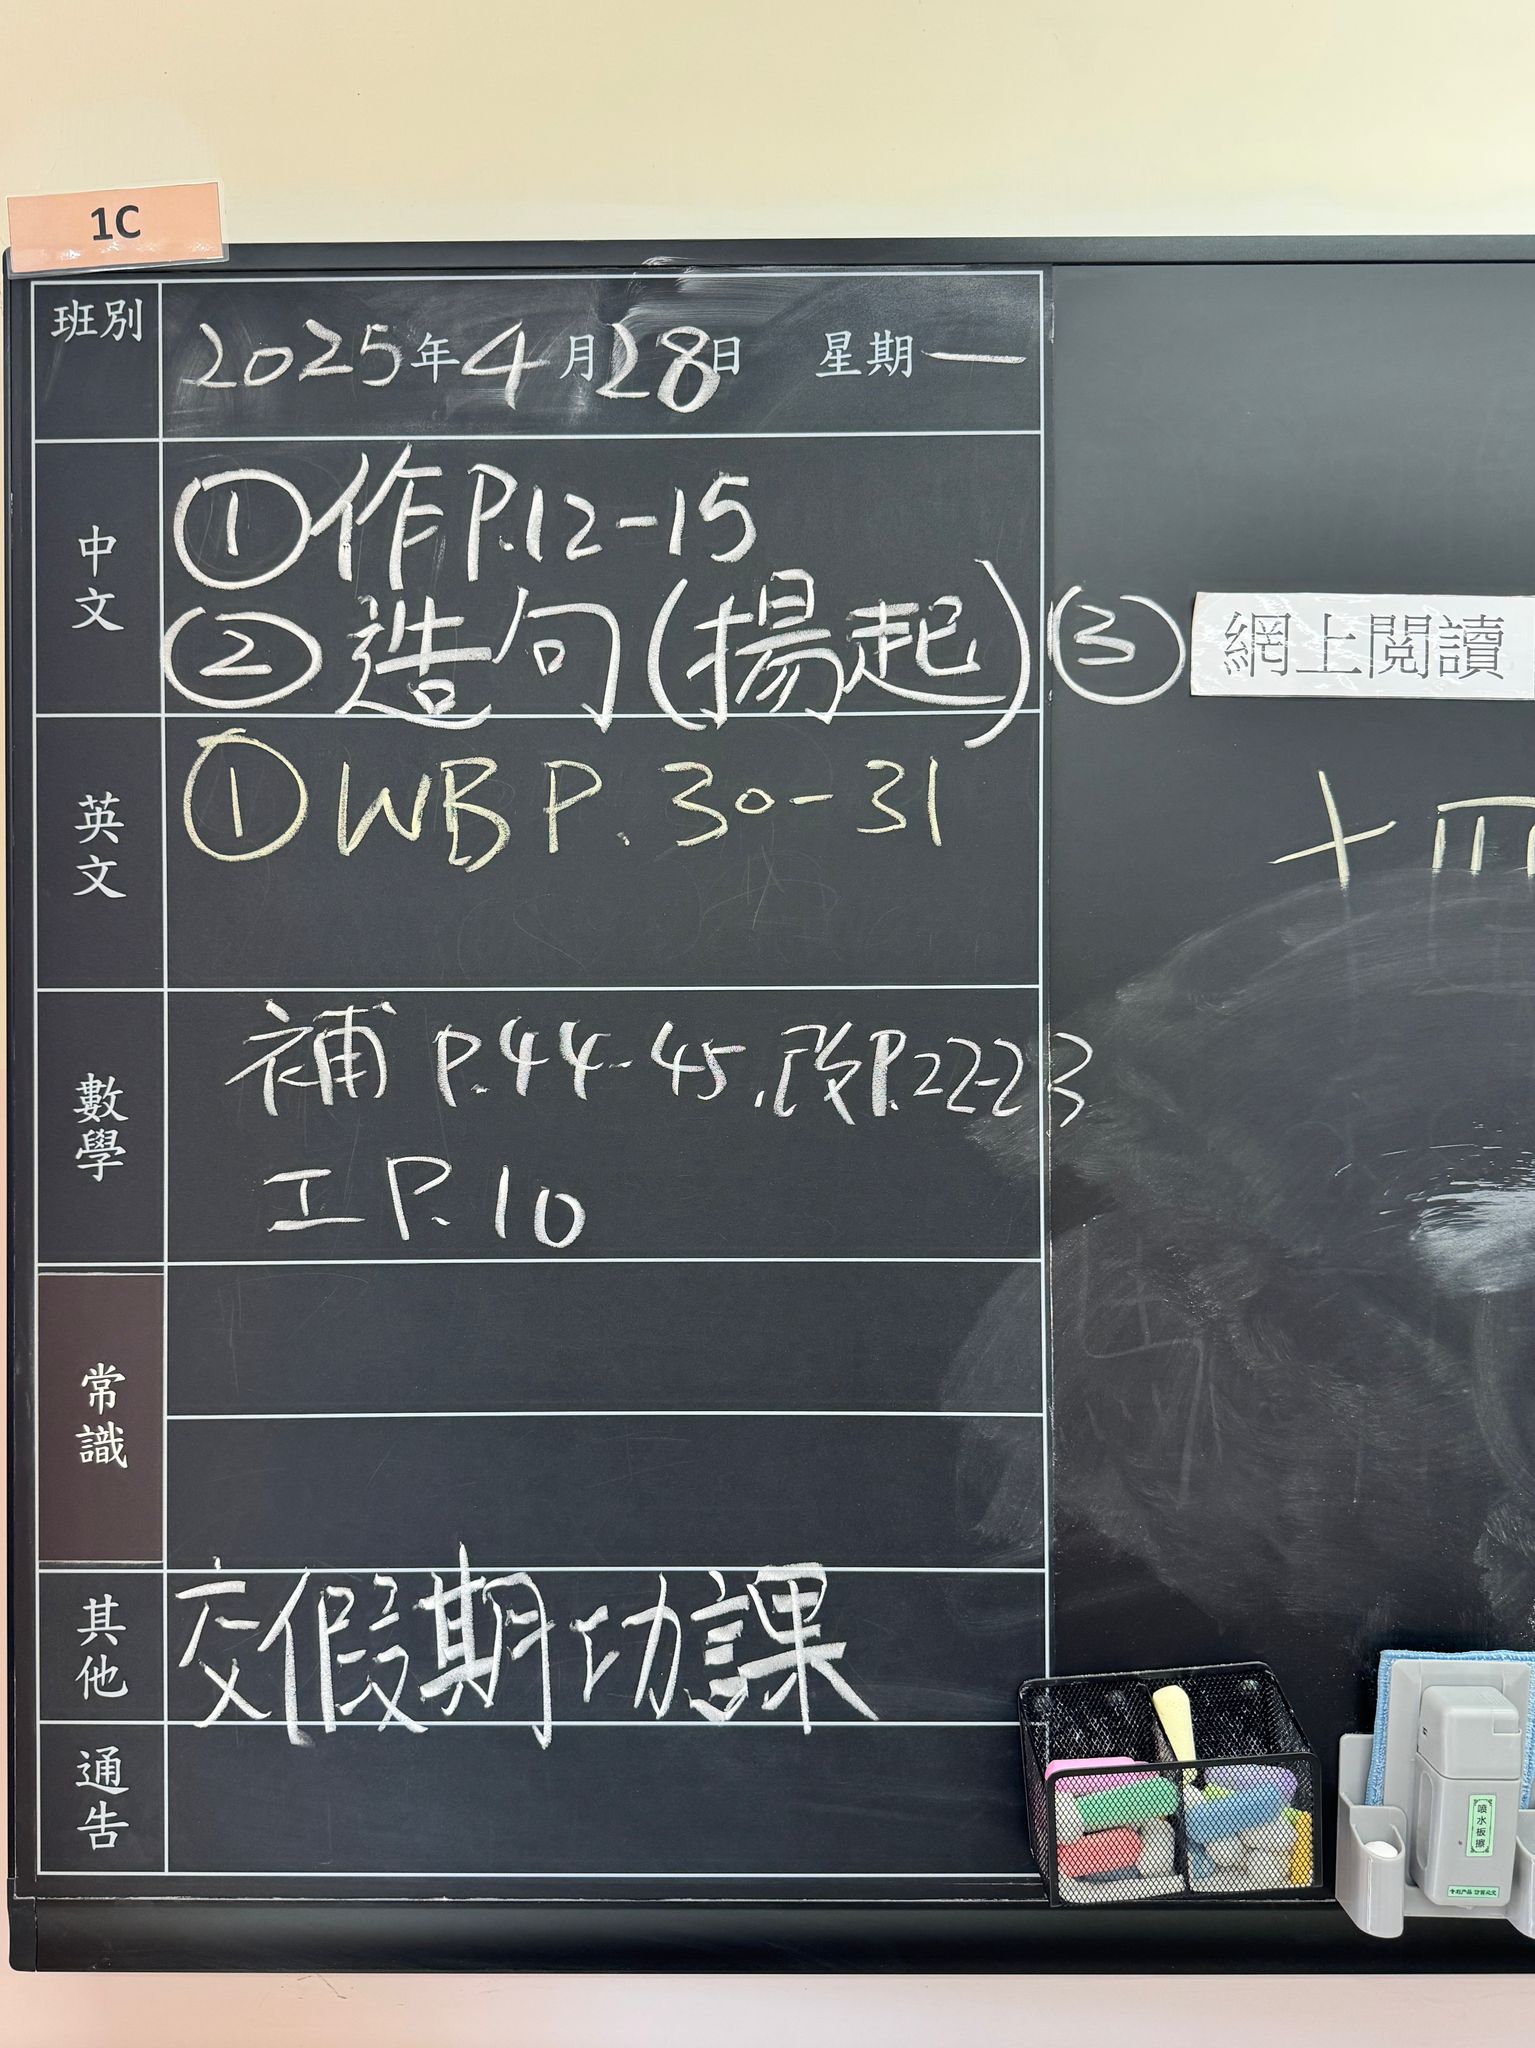 1C
班別 2025年4月28日 星期一
中文 ①作P.12-15
②造句(揚起) ③ 網上閱讀
英文 ①WB P. 30-31
十四
數學 補 P.44-45, 改P.22-23
工 P.10
常識
其他 交假期功課
通告
噴水板擦